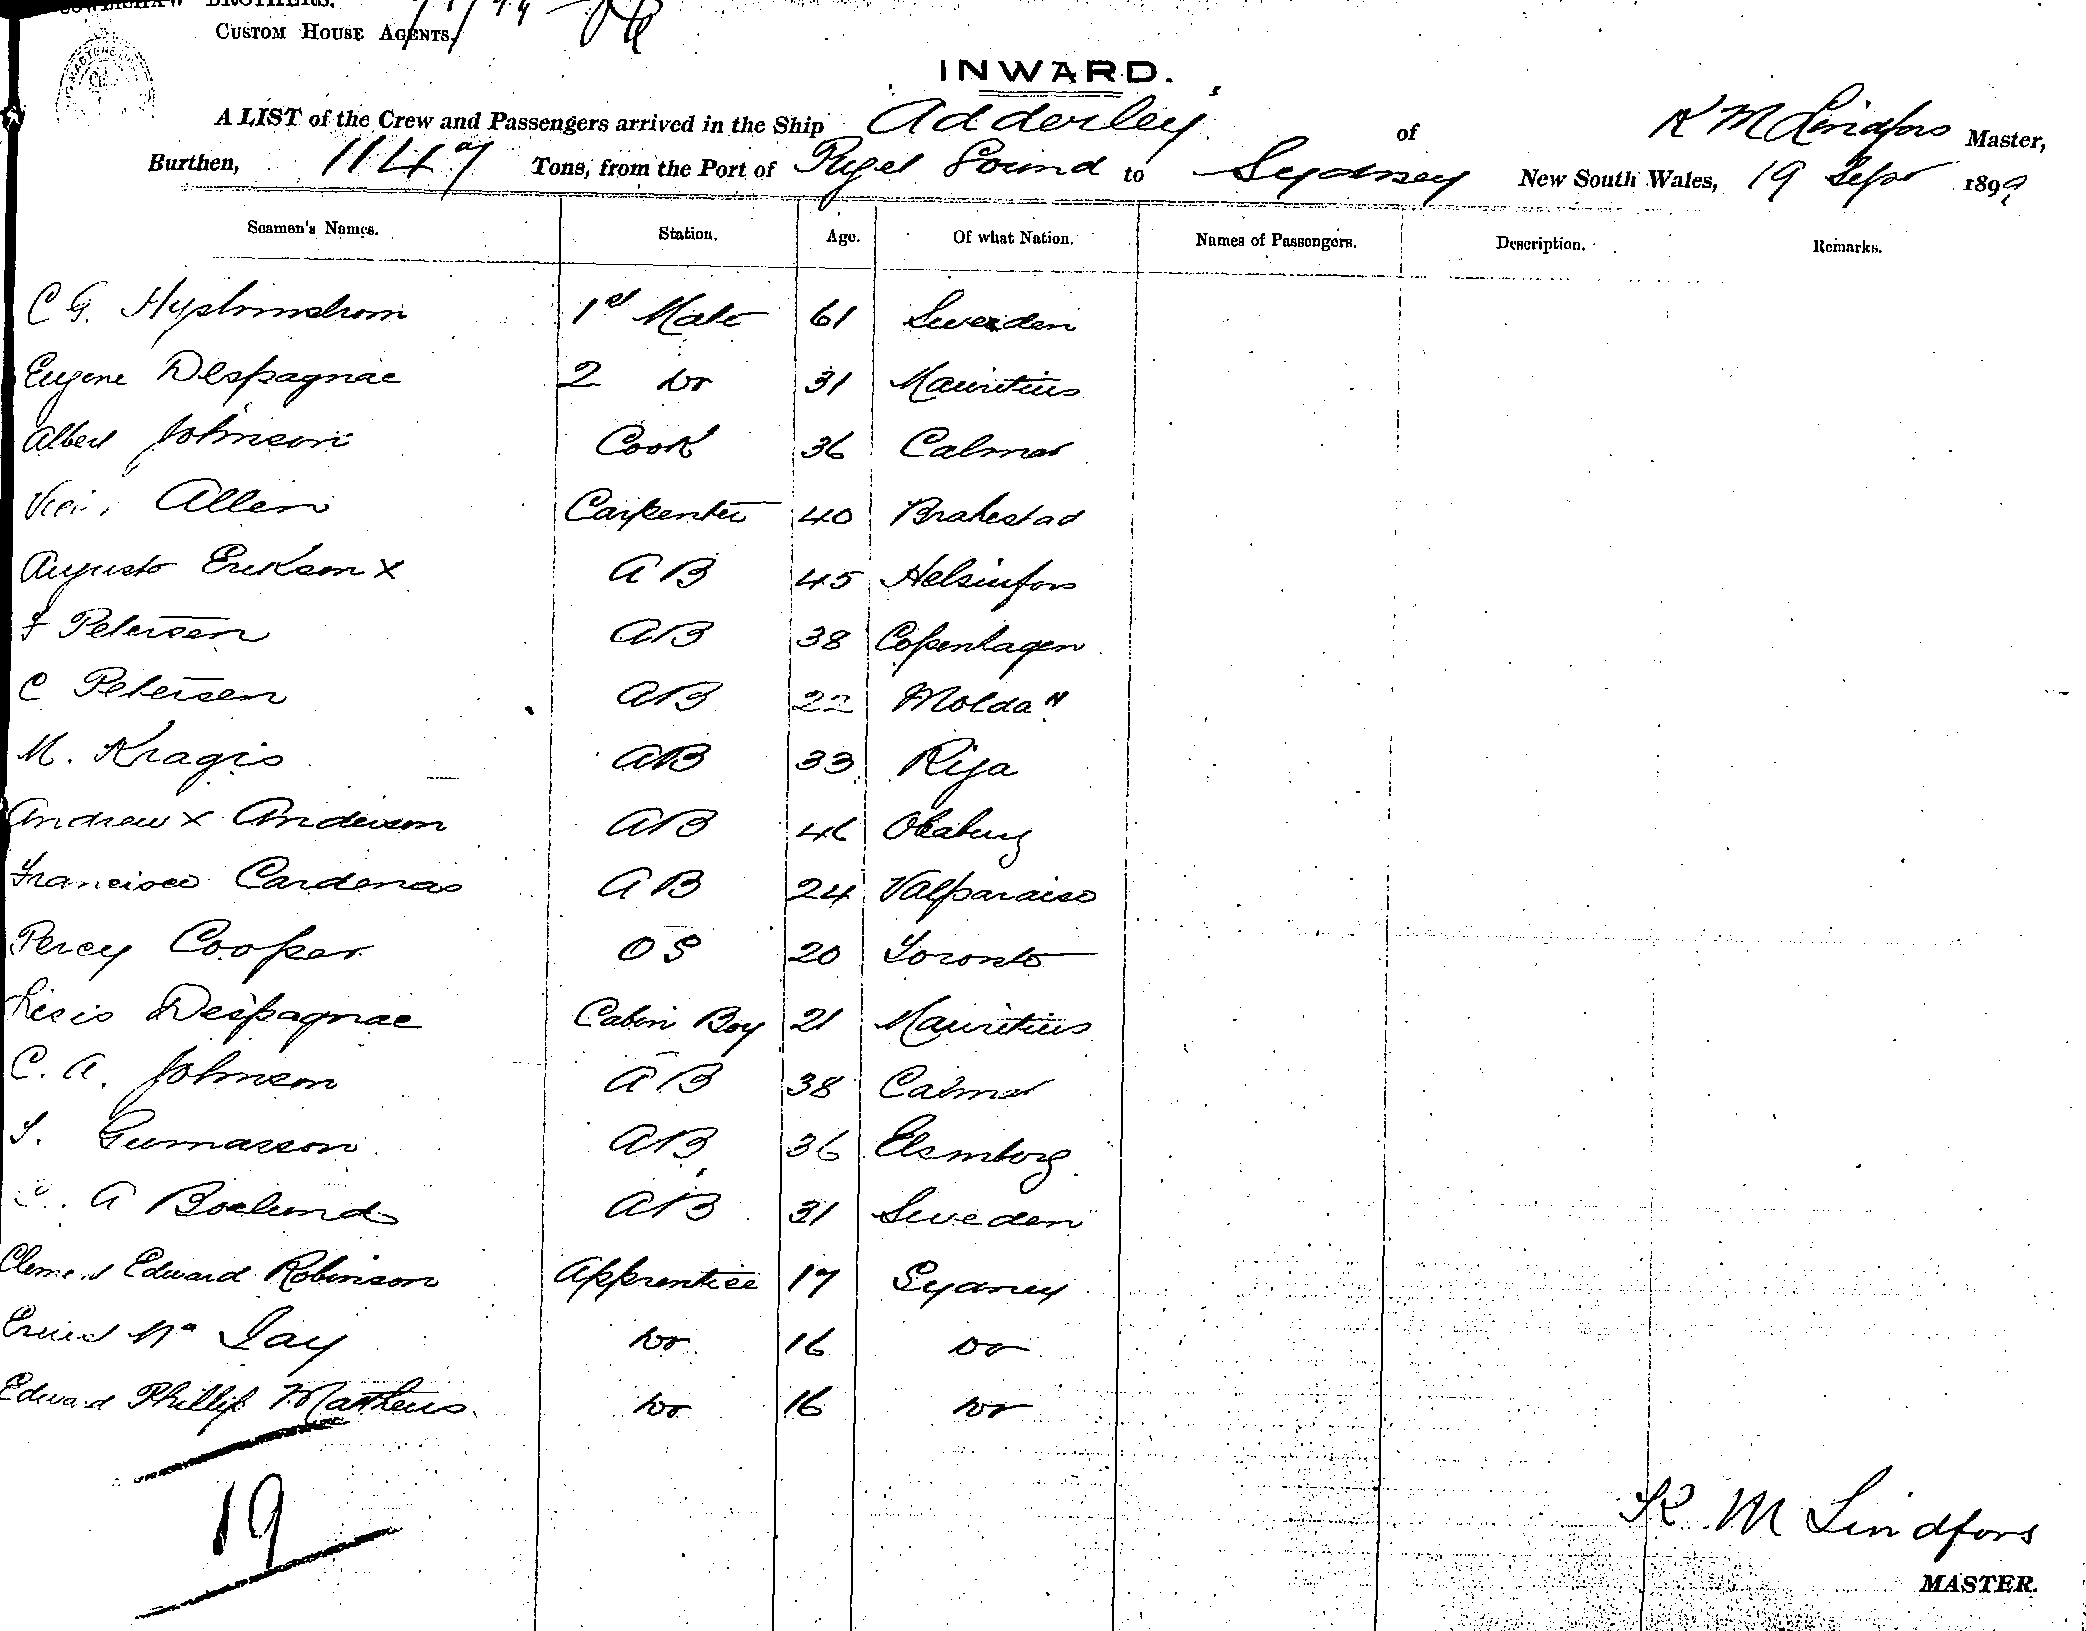 BROTHERS.
CUSTOM HOUSE AGENTS.
INWARD.
A LIST of the Crew and Passengers arrived in the Ship Adderley of K M Lindfors Master,
Burthen, 1147 Tons, from the Port of Puget Sound to Sydney New South Wales, 19 Sepr 1899
Seamen's Names. Station. Age. Of what Nation. Names of Passengers. Description. Remarks.
C G. 1st Mate 61 Sweden
Eugene Despagnac 2 Do 31 Mauritius
Albert Johnson Cook 36 Calmar
Allen Carpenter 40 Brahestad
Augusto Erikson X A B 45 Helsinfors
F Petersen AB 38 Copenhagen
C Petersen AB 22 Molda
M. Kragis AB 33 Riga
Andrew X Anderson AB 46
Francisco Cardenas A B 24 Valparaiso
Percy Cooper O S 20 Toronto
Despagnac Cabin Boy 21 Mauritius
C. A. Johnson A B 38 Calmar
AB 36
A AB 31 Sweden
Clement Edward Robinson Apprentice 17 Sydney
Jay Do 16 Do
Edward Phillip Matthews. Do 16 Do
19
K M Lindfors
MASTER.